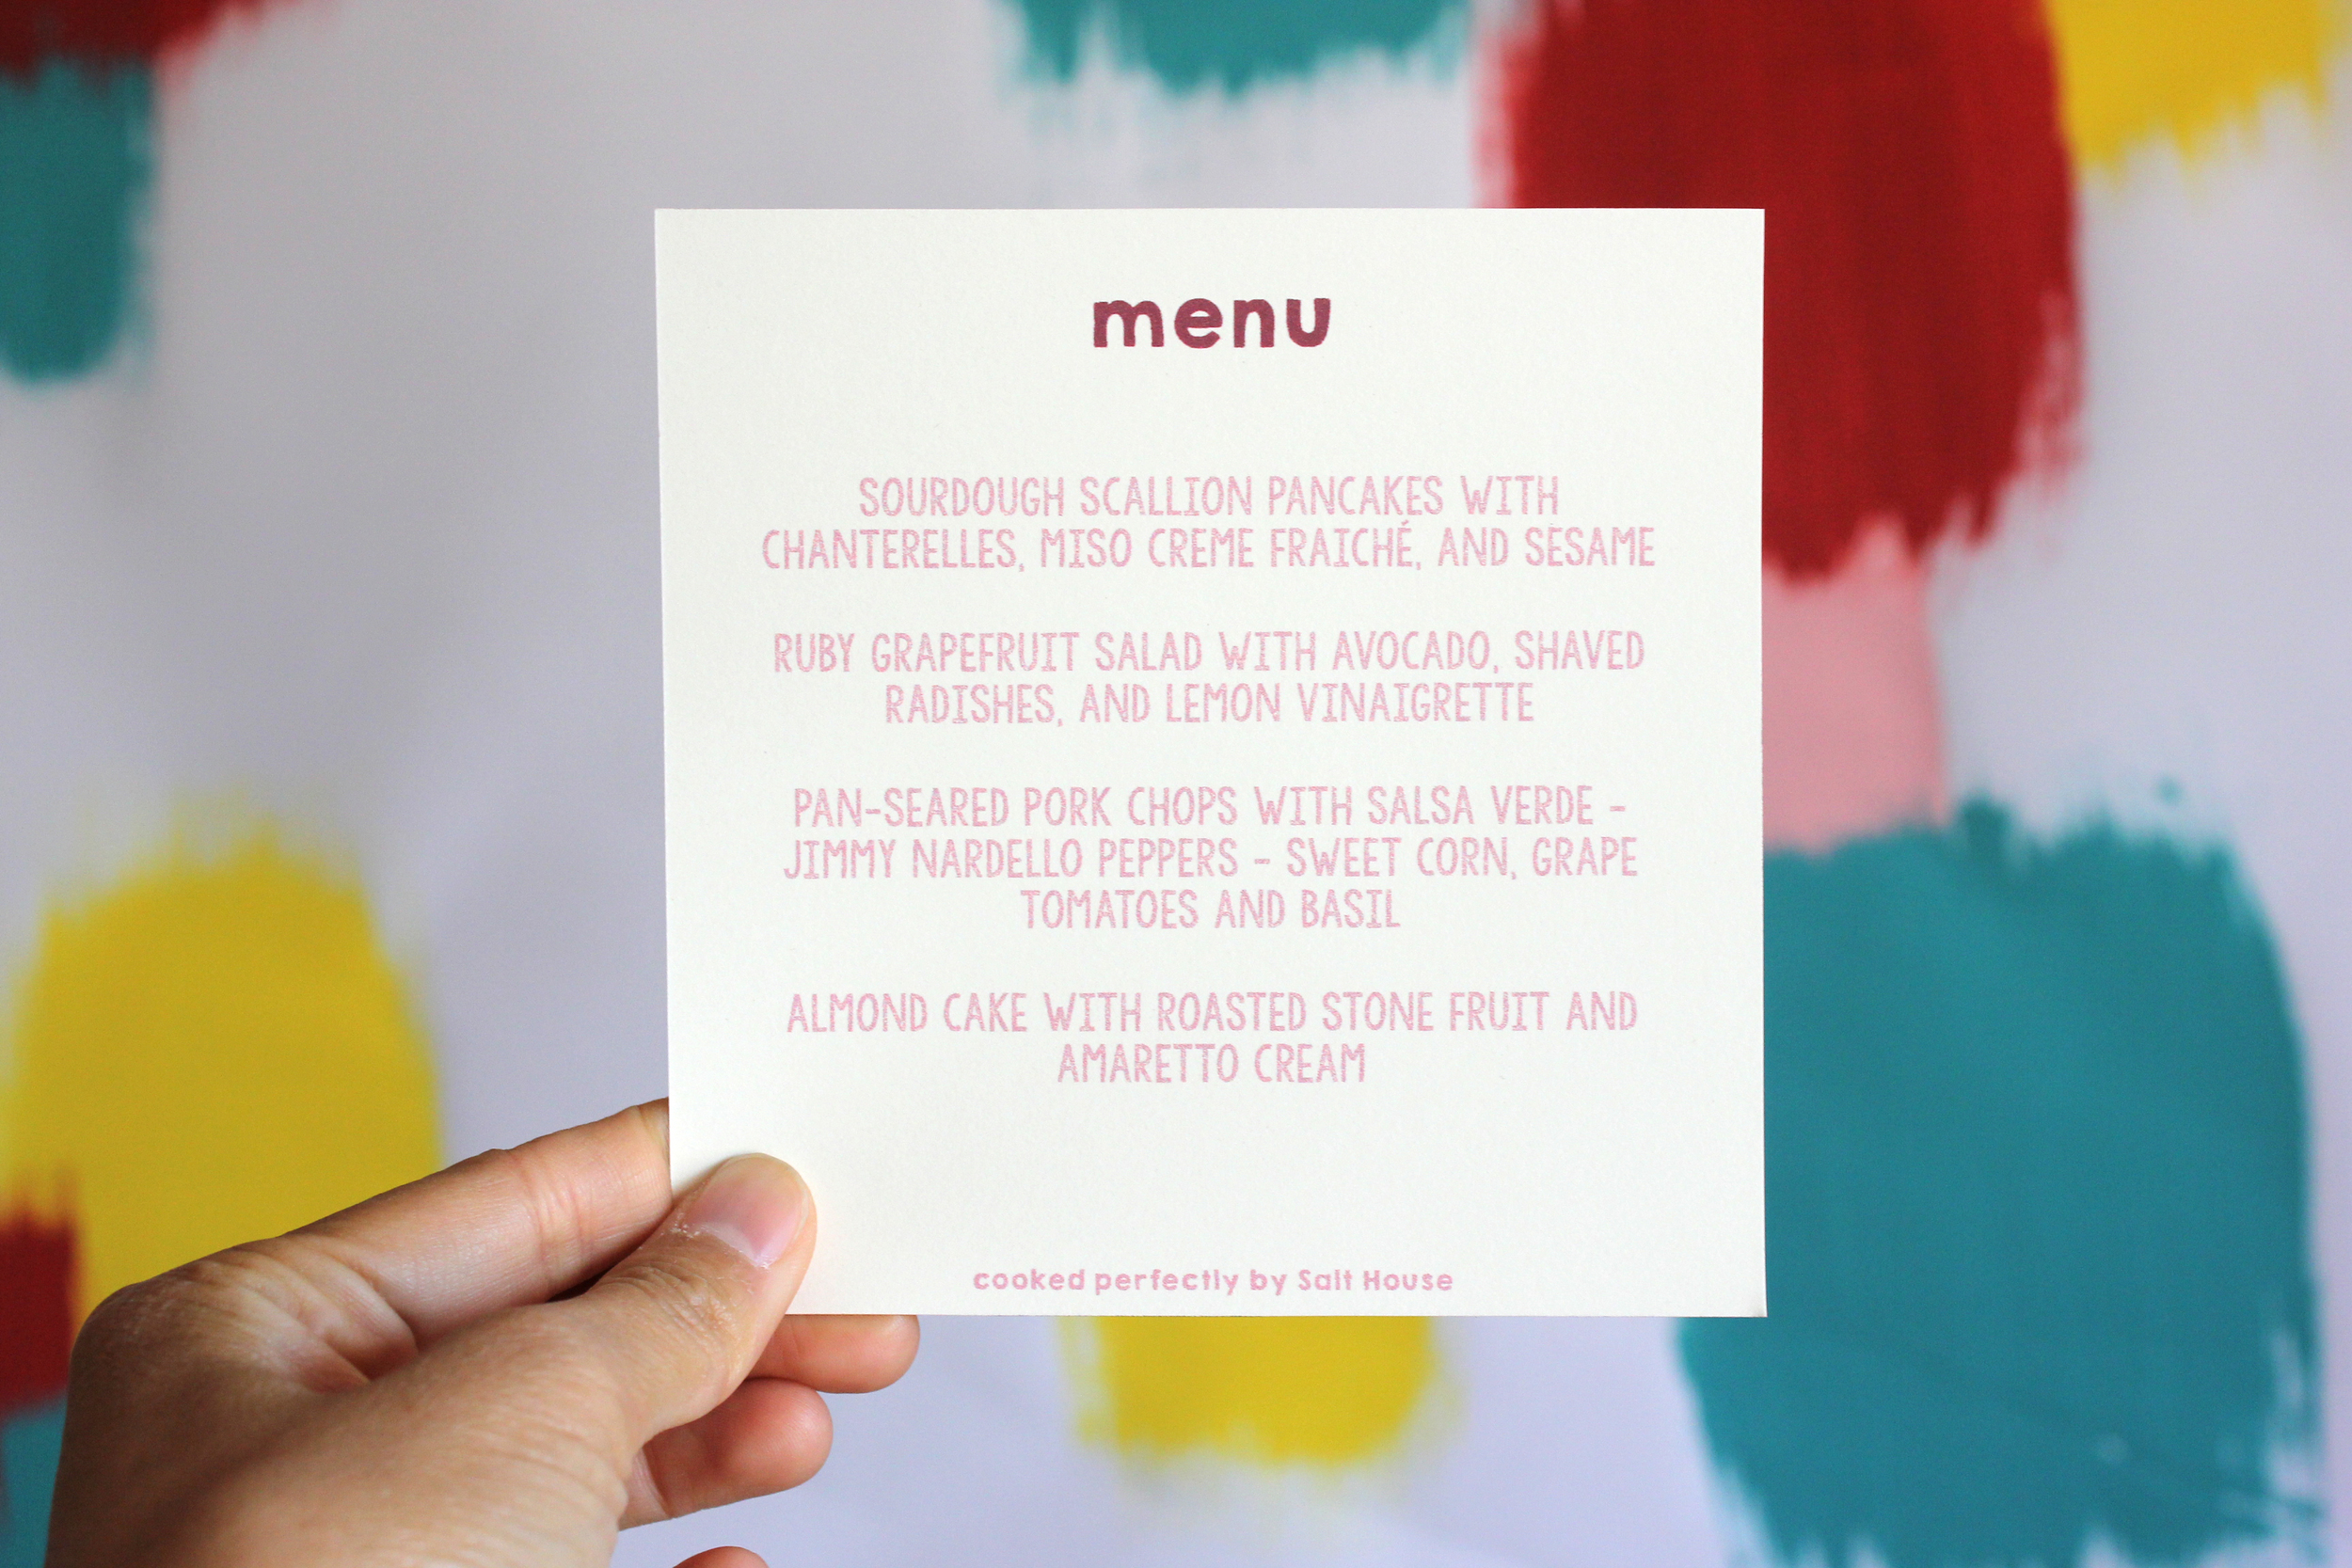 menu
SOURDOUGH SCALLION PANCAKES WITH
CHANTERELLES, MISO CREME FRAICHÉ, AND SESAME
RUBY GRAPEFRUIT SALAD WITH AVOCADO, SHAVED
RADISHES, AND LEMON VINAIGRETTE
PAN-SEARED PORK CHOPS WITH SALSA VERDE -
JIMMY NARDELLO PEPPERS - SWEET CORN, GRAPE
TOMATOES AND BASIL
ALMOND CAKE WITH ROASTED STONE FRUIT AND
AMARETTO CREAM
cooked perfectly by Salt House